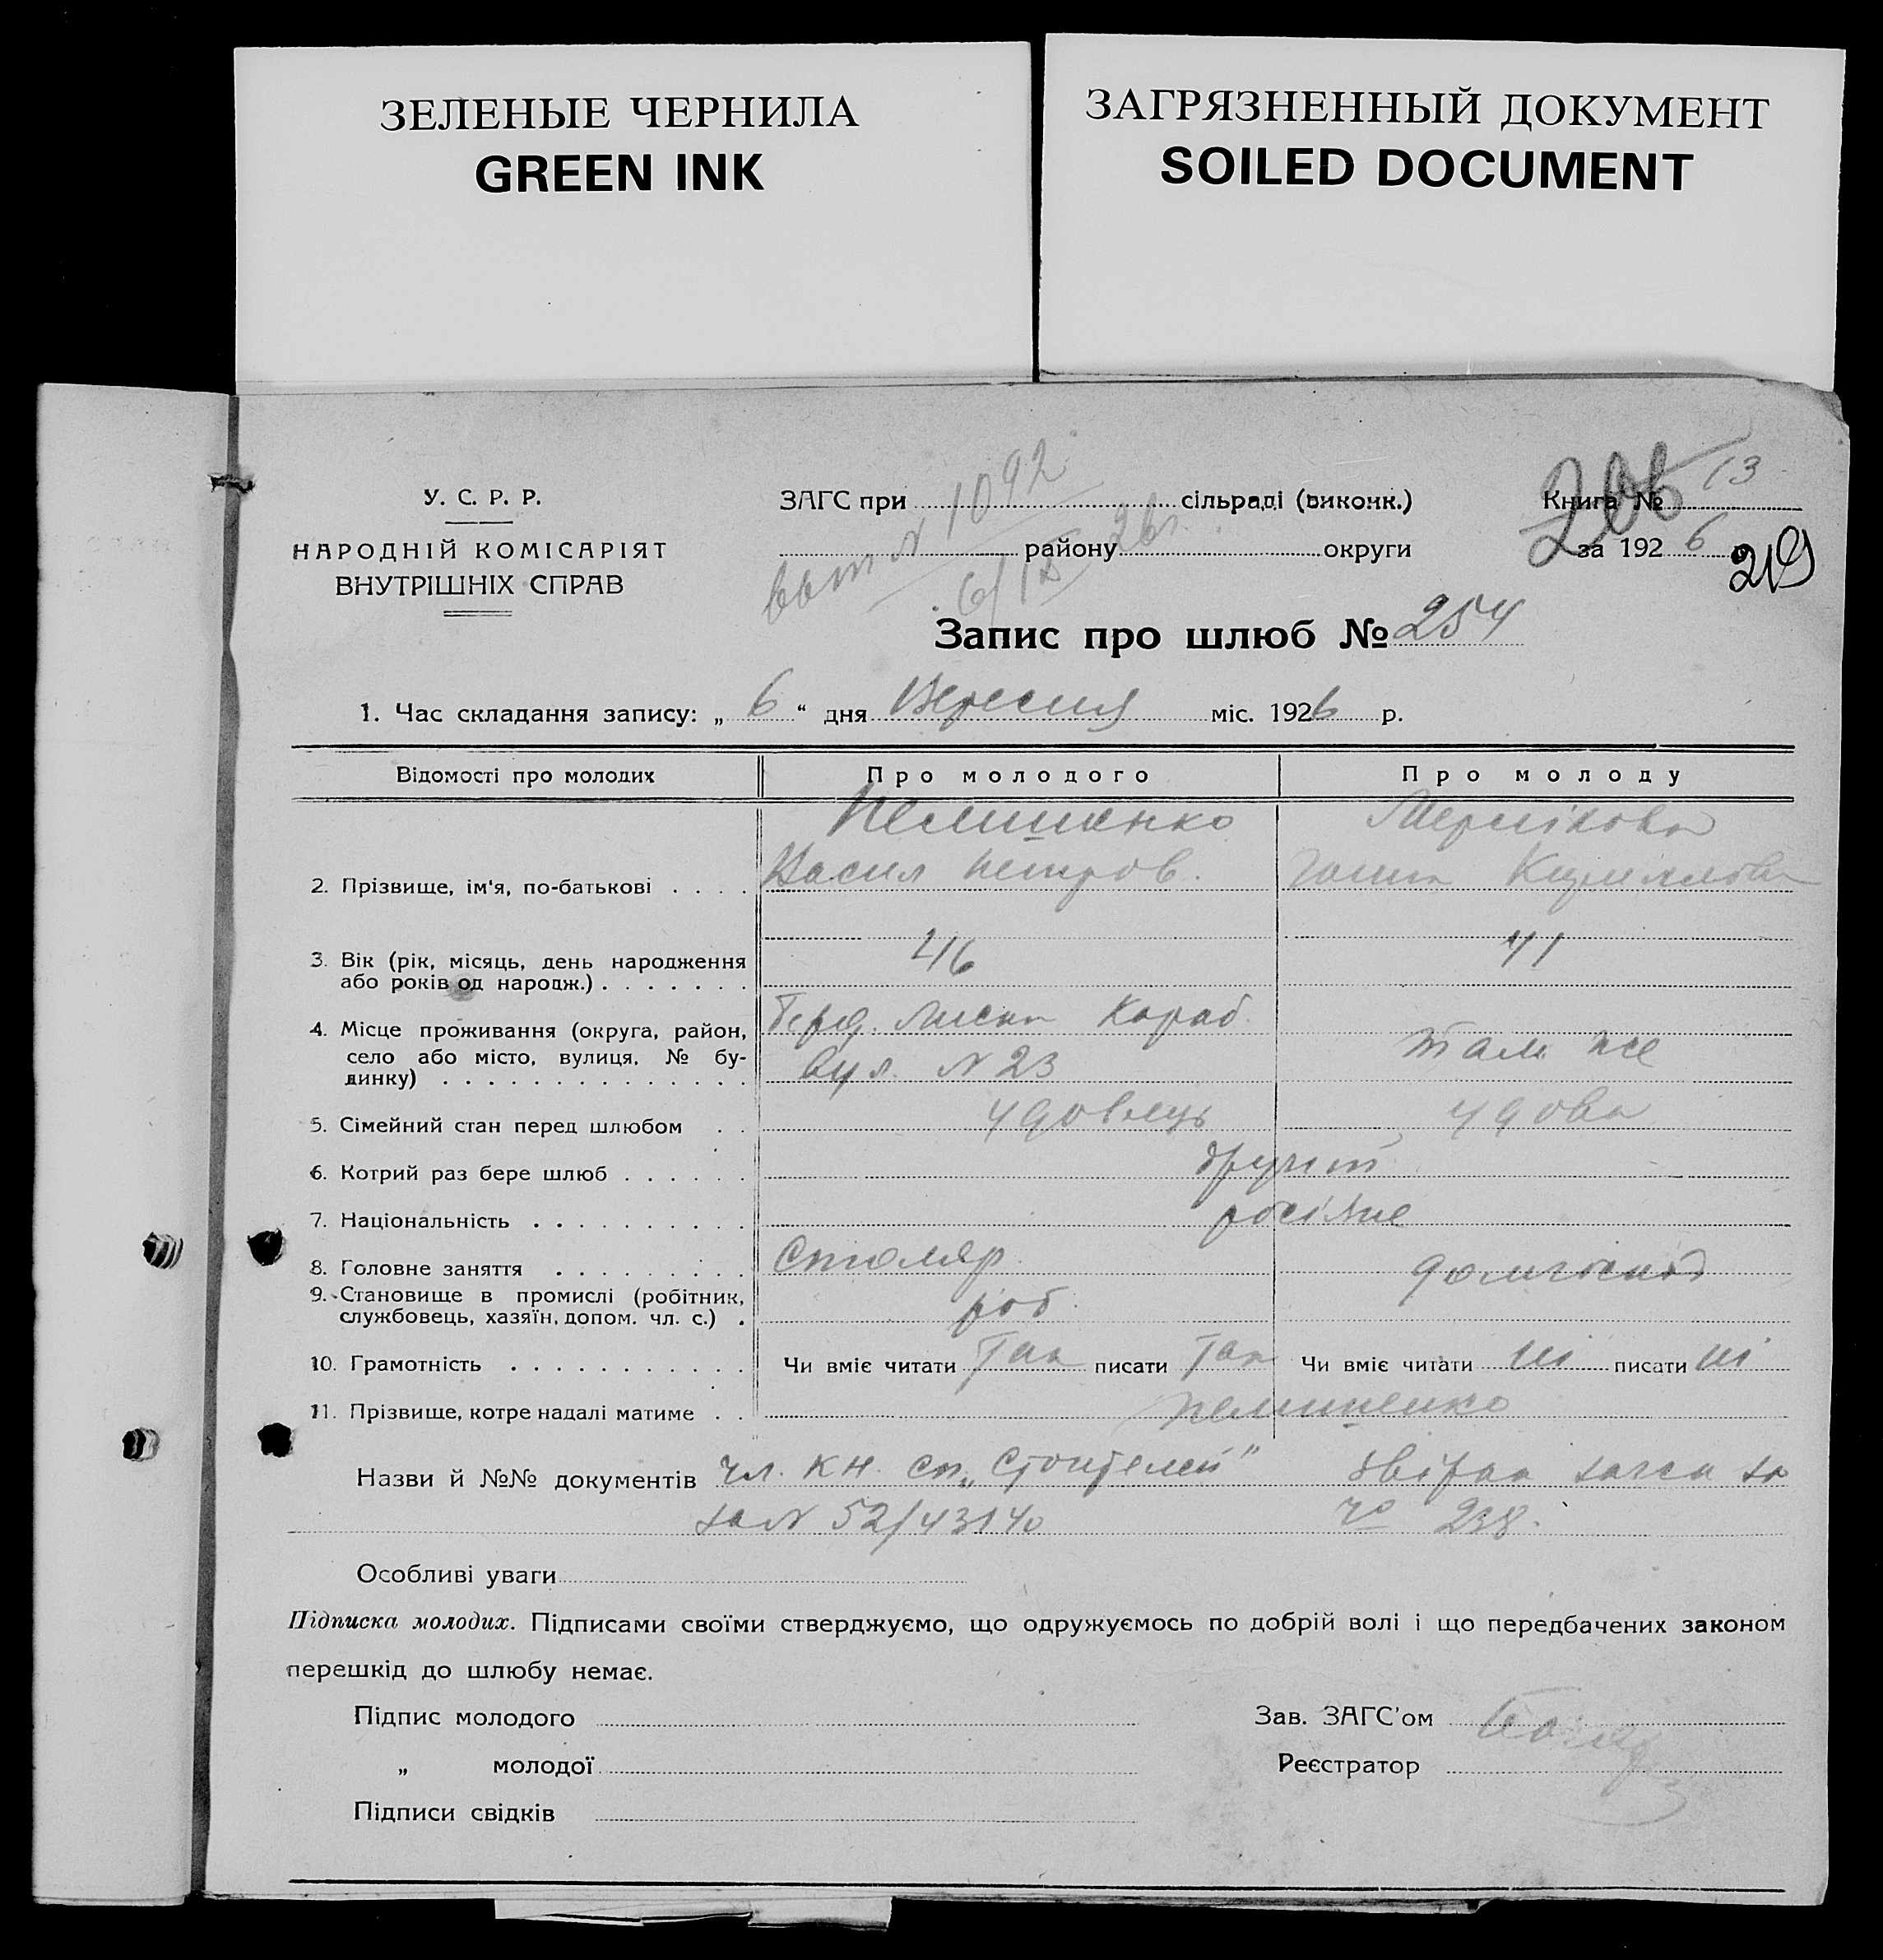 ЗЕЛЕНЫЕ ЧЕРНИЛА
GREEN INK
ЗАГРЯЗНЕННЫЙ ДОКУМЕНТ
SOILED DOCUMENT
У. С. Р. Р.
НАРОДНІЙ КОМІСАРІЯТ
ВНУТРІШНІХ СПРАВ
ЗАГС при сільраді (виконк.)
району округи
№ 1092
6/IX 26 г.
Книга № 13
за 1926
206
219
Запис про шлюб № 254
1. Час складання запису: „ 6 “ дня Вересня міс. 1926 р.
Відомості про молодих Про молодого Про молоду
2. Прізвище, ім'я, по-батькові . . . .
Василь Петров.
3. Вік (рік, місяць, день народження 46 41
або років од народж.) . . . . . . .
4. Місце проживання (округа, район, Берд. Лиски Кораб.
село або місто, вулиця, № бу- вул. N 23 там же
динку) . . . . . . . . . . . . . .
5. Сімейний стан перед шлюбом . . удовець удова
6. Котрий раз бере шлюб . . . . . . другий
7. Національність . . . . . . . . . . росіяне
8. Головне заняття . . . . . . . . . Столяр домгоспод
9. Становище в промислі (робітник, роб.
службовець, хазяїн, допом. чл. с.) .
10. Грамотність . . . . . . . . . . . Чи вміє читати Так писати Так Чи вміє читати ні писати ні
11. Прізвище, котре надалі матиме . .
Назви й №№ документів чл. кн. сп. „Строителей"
за N 52/43140 238.
Особливі уваги
Підписка молодих. Підписами своїми стверджуємо, що одружуємось по добрій волі і що передбачених законом
перешкід до шлюбу немає.
Підпис молодого Зав. ЗАГС'ом
„ молодої Реєстратор
Підписи свідків